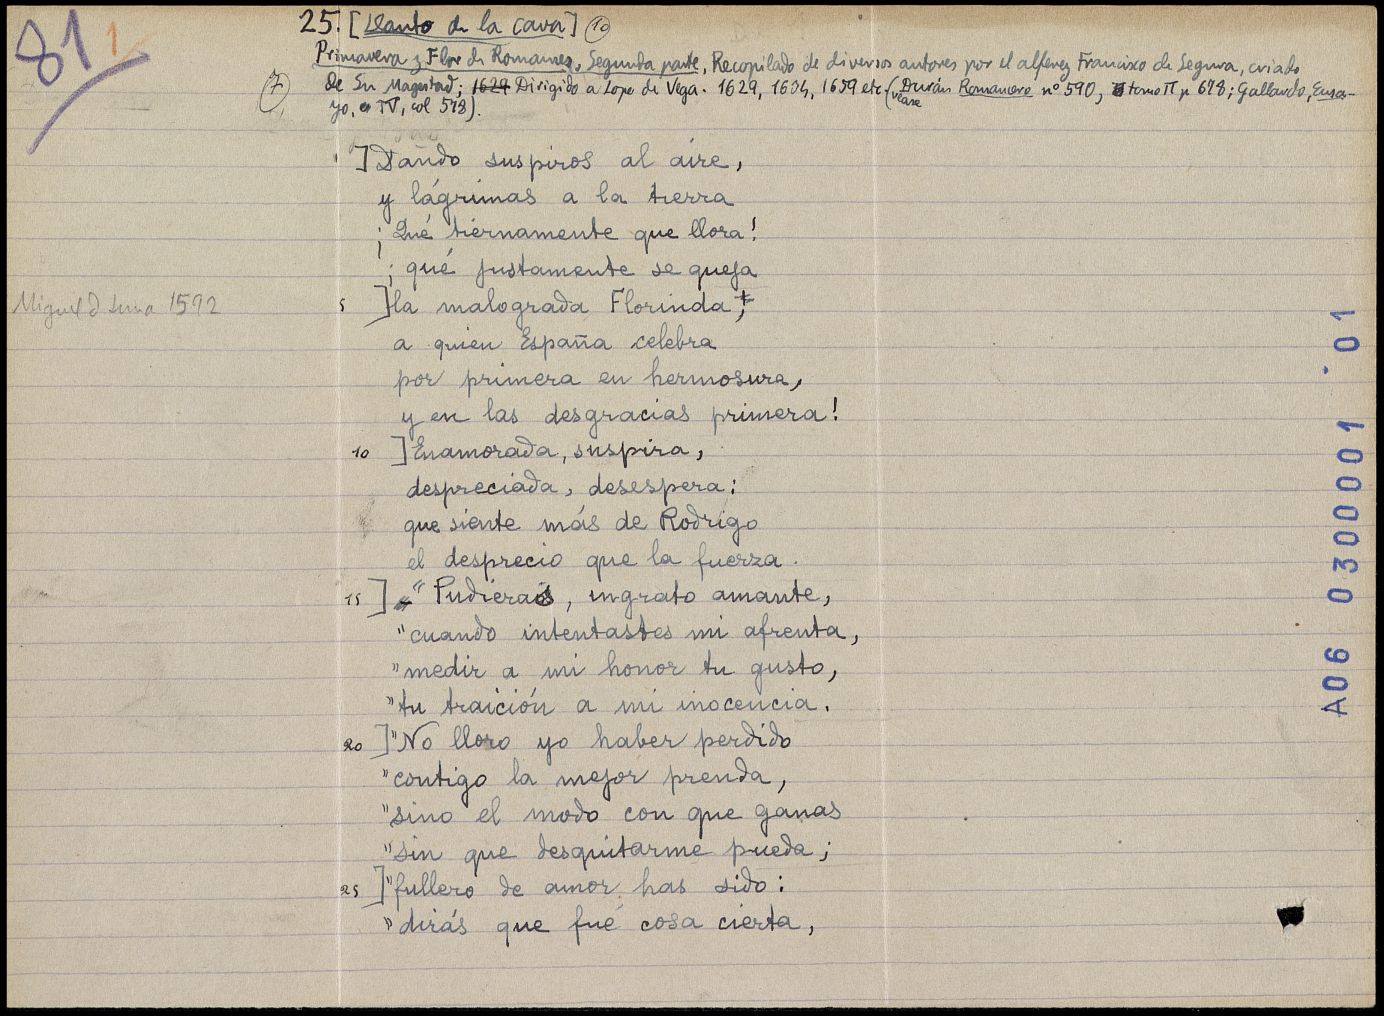 81 1
25. [Llanto de la Cava] 10
Primavera y Flor de Romances, Segunda parte, Recopilado de diversos autores por el alferez Francisco de Segura, criado
7
de Su Magestad; 1629 Dirigido a Lope de Vega. 1629, 1634, 1659 etc (véase Durán Romancero nº 590, tomo II p 678; Gallardo, Ensa-
yo, IV, col 578).
] Dando suspiros al aire,
y lágrimas a la tierra
¡Qué tiernamente que llora!
¡qué justamente se queja
Miguel d Luna 1592
5 ] la malograda Florinda,
a quien España celebra
por primera en hermosura,
y en las desgracias primera!
10 ] Enamorada, suspira,
despreciada, desespera:
que siente más de Rodrigo
el desprecio que la fuerza.
15 ] "Pudieras, ingrato amante,
"cuando intentastes mi afrenta,
"medir a mi honor tu gusto,
"tu traición a mi inocencia.
20 ] "No lloro yo haber perdido
"contigo la mejor prenda,
"sino el modo con que ganas
"sin que desquitarme pueda;
25 ] "fullero de amor has sido:
"dirás que fué cosa cierta,
A06 0300001 - 01